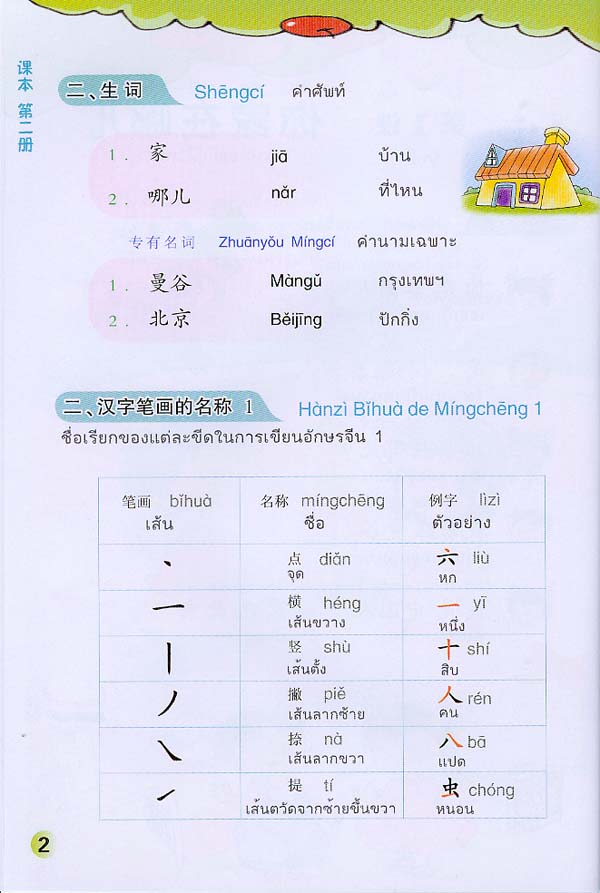 课本 第二册
二、生词 Shēngcí คำศัพท์
1. 家 jiā บ้าน
2. 哪儿 nǎr ที่ไหน
专有名词 Zhuānyǒu Míngcí คำนามเฉพาะ
1. 曼谷 Màngǔ กรุงเทพฯ
2. 北京 Běijīng ปักกิ่ง
二、汉字笔画的名称 1 Hànzì Bǐhuà de Míngchēng 1
ชื่อเรียกของแต่ละขีดในการเขียนอักษรจีน 1
笔画 bǐhuà 名称 míngchēng 例字 lìzì
เส้น ชื่อ ตัวอย่าง
丶 点 diǎn 六 liù
จุด หก
一 横 héng 一 yī
เส้นขวาง หนึ่ง
丨 竖 shù 十 shí
เส้นตั้ง สิบ
丿 撇 piě 人 rén
เส้นลากซ้าย คน
㇏ 捺 nà 八 bā
เส้นลากขวา แปด
㇀ 提 tí 虫 chóng
เส้นตวัดจากซ้ายขึ้นขวา หนอน
2